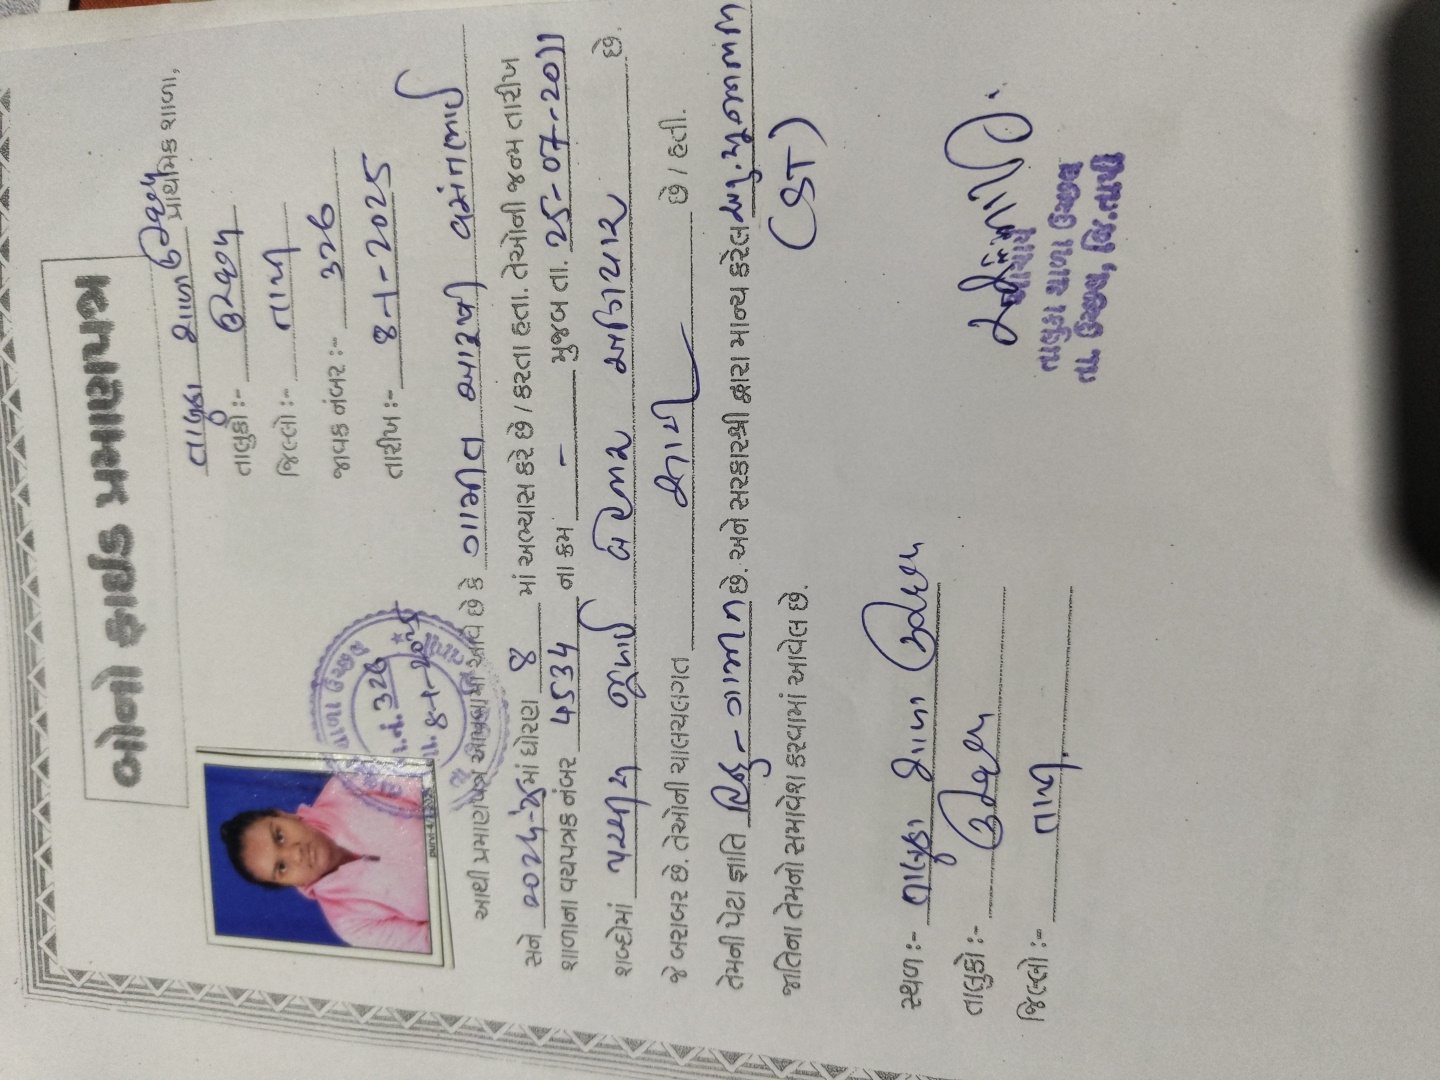 બોનો ફાઇડ પ્રમાણપત્ર
તાલુકા શાળા ઉચ્છલ પ્રાથમિક શાળા,
તાલુકો:- ઉચ્છલ
જિલ્લો:- તાપી
જાવક નંબર:- 326
તારીખ:- 8-1-2025
આથી પ્રમાણપત્ર આપવામાં આવે છે કે ગામીત આરવી વસંતભાઈ
સને ૨૦૨૪-૨૫માં ધોરણ 8 માં અભ્યાસ કરે છે / કરતા હતા. તેઓની જન્મ તારીખ
શાળાના વયપત્રક નંબર 4534 ના ક્રમ - મુજબ તા. 25-07-2011
શબ્દોમાં પચ્ચીસ જુલાઈ બે હજાર અગિયાર છે.
જે બરાબર છે. તેઓની ચાલચલગત સારી છે / હતી.
તેમની પેટા જ્ઞાતિ હિન્દુ - ગામીત છે. અને સરકારશ્રી દ્વારા માન્ય કરેલ અનુ.જનજાતિ
જાતિના તેમનો સમાવેશ કરવામાં આવેલ છે. (ST)
સ્થળ:- તાલુકા શાળા ઉચ્છલ
તાલુકો:- ઉચ્છલ
જિલ્લો:- તાપી
આચાર્ય
તા. ઉચ્છલ, જિ.તાપી